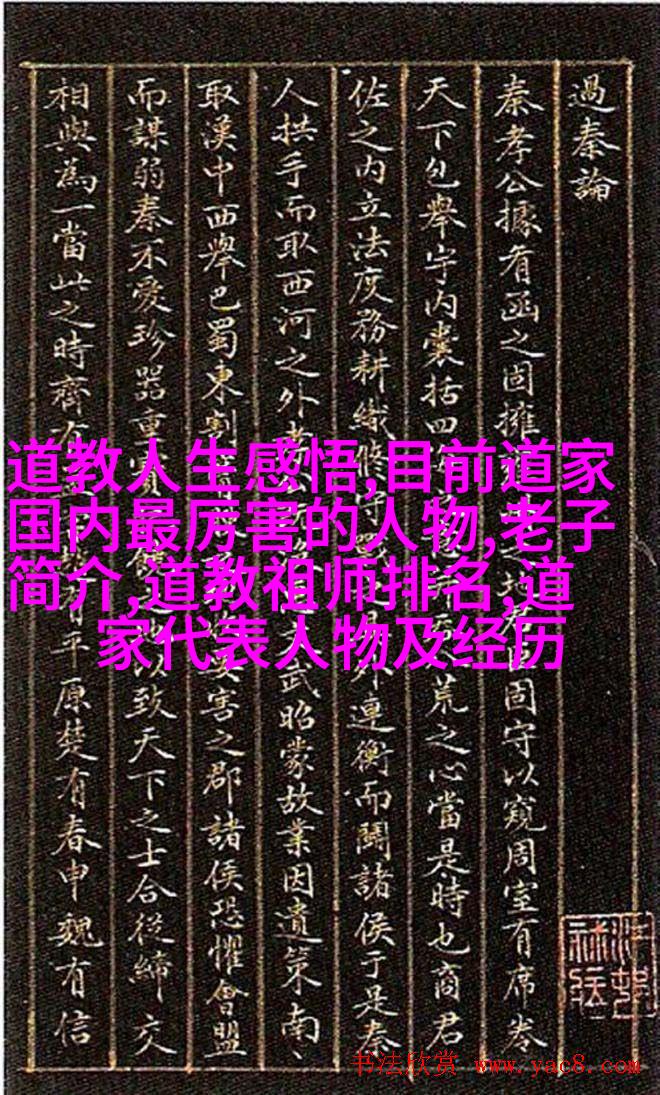 過秦論
秦孝公據有函之固擁之地君固守以窺周室有席卷
天下包舉宇內囊括四荒之心當是時也商君
佐之內立法度務耕織脩守戰外連衡而鬭諸侯于是秦
人拱手而取西河之外孝文武昭蒙故業因遺策南、
取漢中西舉巴蜀東割膏要害之郡諸侯恐懼會盟
而謀弱秦不愛珍器重寶以致天下之士合從締交
相與為一當此之時齊有有平原楚有春申魏有信
道教人生感悟,目前道家
国内最厉害的人物,老子
简介,道教祖师排名,道
家代表人物及经历
书法欣赏 www.yac8.com